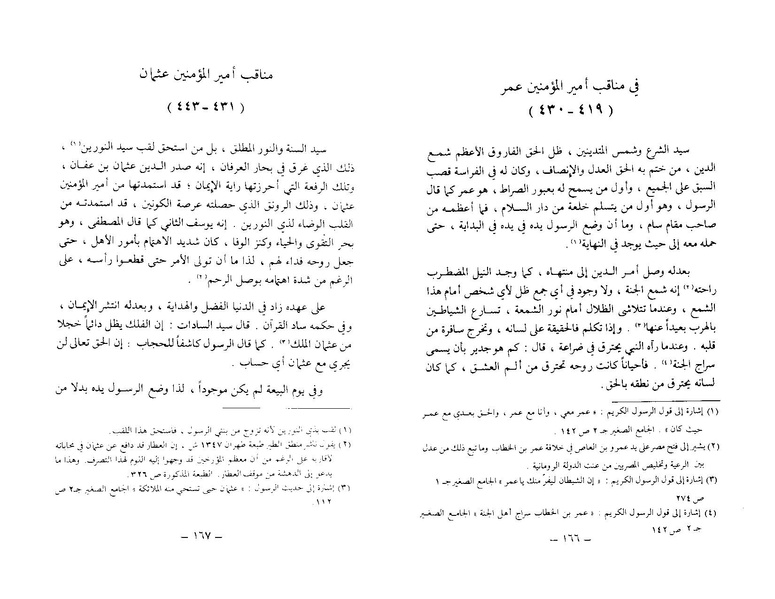 في مناقب أمير المؤمنين عمر
( ٤١٩ - ٤٣٠ )
سيد الشرع وشمس المتدينين ، ظل الحق الفاروق الأعظم شمع
الدين ، من ختم به الحق العدل والإنصاف ، وكان له في الفراسة قصب
السبق على الجميع ، وأول من يسمح له بعبور الصراط ، هو عمر كما قال
الرسول ، وهو أول من يتسلم خلعة من دار السلام ، فما أعظمه من
صاحب مقام سام ، وما أن وضع الرسول يده في يده في البداية ، حتى
حمله معه إلى حيث يوجد في النهاية (١) .
بعدله وصل أمر الدين إلى منتهاه ، كما وجد النيل المضطرب
راحته (٢) إنه شمع الجنة ، ولا وجود في أي جمع ظل لأي شخص أمام هذا
الشمع ، وعندما تتلاشى الظلال أمام نور الشمعة ، تسارع الشياطين
بالهرب بعيداً عنها (٣) . وإذا تكلم فالحقيقة على لسانه ، وتخرج سافرة من
قلبه . وعندما رآه النبي يحترق في ضراعة ، قال : كم هو جدير بأن يسمى
سراج الجنة (٤) . فأحياناً كانت روحه تحترق من ألم العشق ، كما كان
لسانه يحترق من نطقه بالحق .
(١) إشارة إلى قول الرسول الكريم : « عمر معي ، وأنا مع عمر ، والحق بعدي مع عمر
حيث كان » . الجامع الصغير جـ ٢ ص ١٤٢ .
(٢) يشير إلى فتح مصر على يد عمرو بن العاص في خلافة عمر بن الخطاب وما تبع ذلك من عدل
بين الرعية وتخليص المصريين من عنت الدولة الرومانية .
(٣) إشارة إلى قول الرسول الكريم : « إن الشيطان ليفرّ منك يا عمر » الجامع الصغير جـ ١
ص ٢٧٤
(٤) إشارة إلى قول الرسول الكريم : « عمر بن الخطاب سراج أهل الجنة » الجامع الصغير
جـ ٢ ص ١٤٢
— ١٦٦ —
مناقب أمير المؤمنين عثمان
( ٤٣١ - ٤٤٣ )
سيد السنة والنور المطلق ، بل من استحق لقب سيد النورين (١) ،
ذلك الذي غرق في بحار العرفان ، إنه صدر الدين عثمان بن عفان ،
وتلك الرفعة التي أحرزتها راية الإيمان ؛ قد استمدتها من أمير المؤمنين
عثمان ، وذلك الرونق الذي حصلته عرصة الكونين ، قد استمدته من
القلب الوضاء لذي النورين . إنه يوسف الثاني كما قال المصطفى ، وهو
بحر التقوى والحياء وكنز الوفا ، كان شديد الاهتمام بأمور الأهل ، حتى
جعل روحه فداء لهم ، لذا ما أن تولى الأمر حتى قطعوا رأسه ، على
الرغم من شدة اهتمامه بوصل الرحم (٢) .
على عهده زاد في الدنيا الفضل والهداية ، وبعدله انتشر الإيمان ،
وفي حكمه ساد القرآن . قال سيد السادات : إن الفلك يظل دائماً خجلا
من عثمان الملك (٣) . كما قال الرسول كاشفاً للحجاب : إن الحق تعالى لن
يجري مع عثمان أي حساب .
وفي يوم البيعة لم يكن موجوداً ، لذا وضع الرسول يده بدلا من
(١) لقب بذي النورين لأنه تزوج من بنتي الرسول ، فاستحق هذا اللقب .
(٢) يقول منطق الطير طبعة طهران ١٣٤٧ ش . إن العطار قد دافع عن عثمان في محاباته
لأقاربه على الرغم من أن معظم المؤرخين قد وجهوا إليه اللوم لهذا التصرف . وهذا ما
يدعو إلى الدهشة من موقف العطار . الطبعة المذكورة ص ٣٢٦ .
(٣) إشارة إلى حديث الرسول : « عثمان حيي تستحي منه الملائكة » الجامع الصغير جـ ٢ ص
١١٢ .
— ١٦٧ —